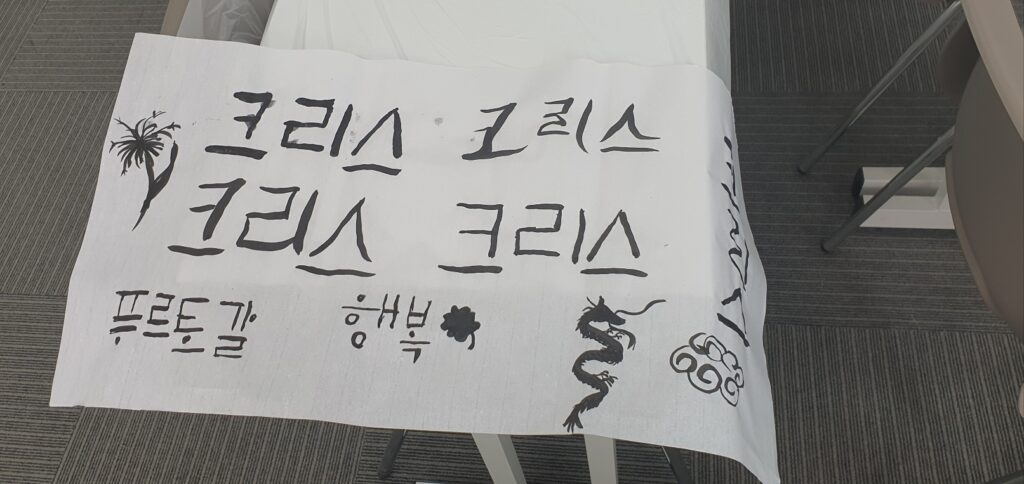 크리스 크리스
크리스 크리스
포르투갈 행복